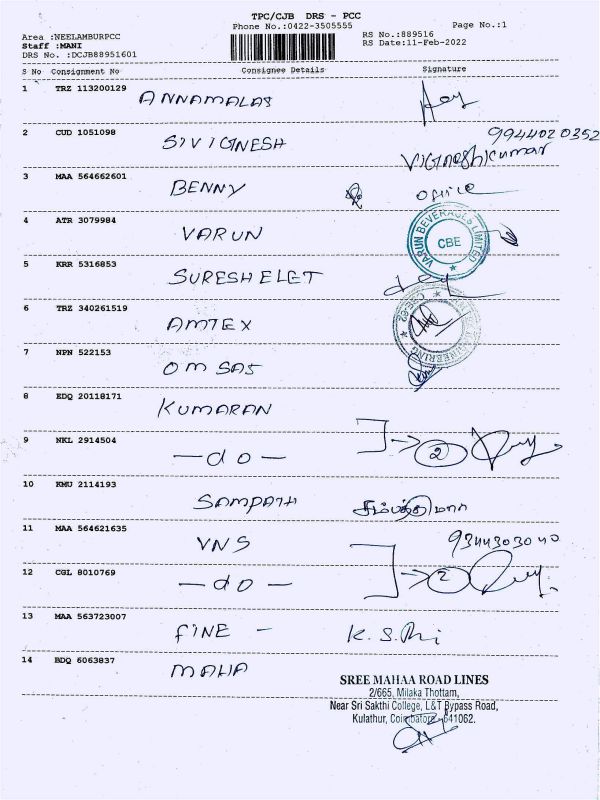 TPC/CJB DRS - PCC
Phone No.:0422-3505555
Page No.:1
Area :NEELAMBURPCC
RS No.:889516
Staff :MANI
RS Date:11-Feb-2022
DRS No. :DCJB88951601
S No Consignment No Consignee Details Signature
1 TRZ 113200129 ANNAMALAS
2 CUD 1051098 SIVIGNESH 9944020352
Vignesh kumar
3 MAA 564662601 BENNY office
4 ATR 3079984 VARUN VARUN BEVERAGES LIMITED CBE
5 KRR 5316853 SURESH ELET
6 TRZ 340261519 AMTEX ENGINEERING
7 NPN 522153 OM SAS
8 EDQ 20118171 KUMARAN
9 NKL 2914504 —do— 2
10 KMU 2114193 SAMPATH
11 MAA 564621635 VNS 9344303040
12 CGL 8010769 —do— 2
13 MAA 563723007 FINE — K. S.
14 BDQ 6063837 MAHA
SREE MAHAA ROAD LINES
2/665, Milaka Thottam,
Near Sri Sakthi College, L&T Bypass Road,
Kulathur, Coimbatore - 641062.